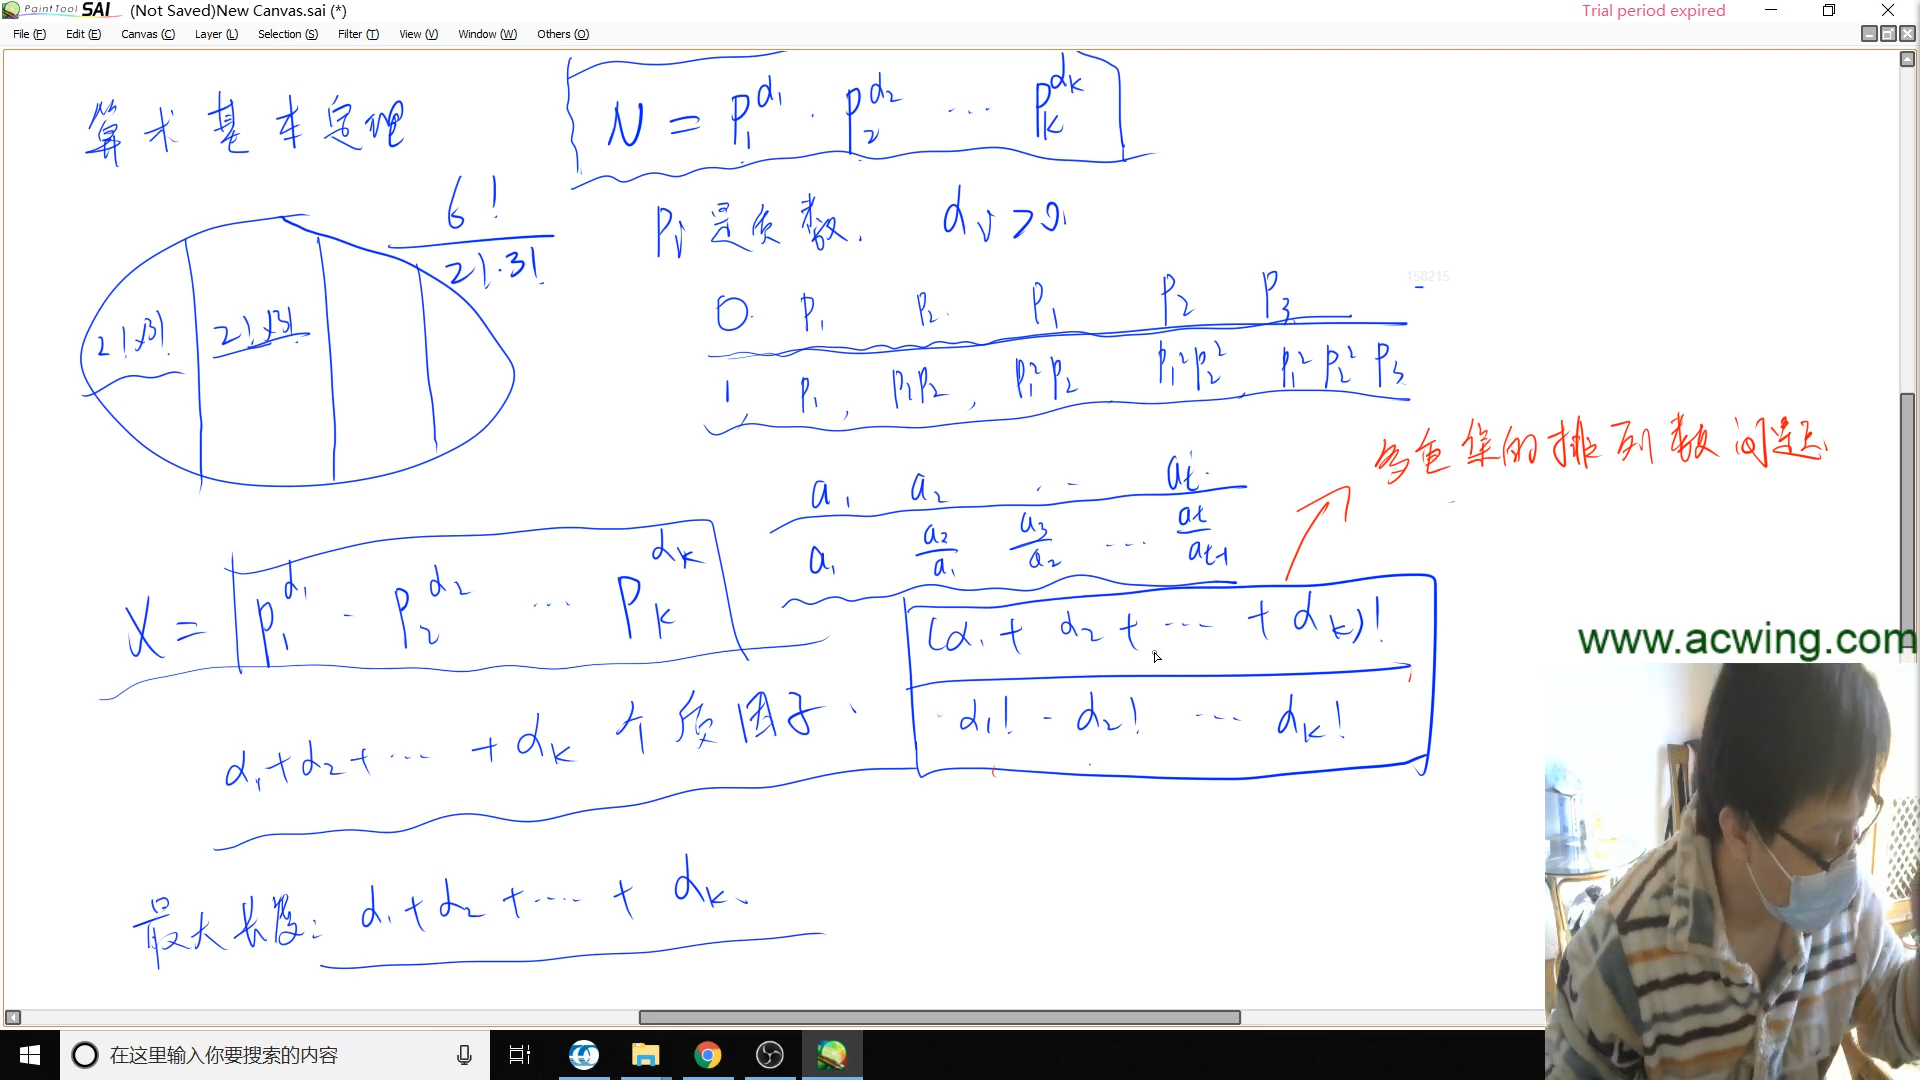 PaintTool SAI (Not Saved)New Canvas.sai (*)
Trial period expired
File (F) Edit (E) Canvas (C) Layer (L) Selection (S) Filter (T) View (V) Window (W) Others (O)
算术基本定理
N = P₁^α₁ · P₂^α₂ ... P_k^α_k
Pᵢ是质数. αᵢ>0.
6!
2!·3!
2!×3! 2!×3!
158215
0. P₁ P₂. P₁ P₂ P₃
1, P₁, P₁P₂, P₁²P₂ P₁²P₂², P₁²P₂²P₃
多重集的排列数问题
a₁ a₂ ... a_t.
a₁ a₂/a₁ a₃/a₂ ... a_t/a_t-1
X = P₁^α₁ · P₂^α₂ ... P_k^α_k
(α₁+α₂+...+α_k)!
α₁!·α₂! ... α_k!
www.acwing.com
α₁+α₂+...+α_k个质因子、
最大长度: α₁+α₂+....+α_k、
在这里输入你要搜索的内容